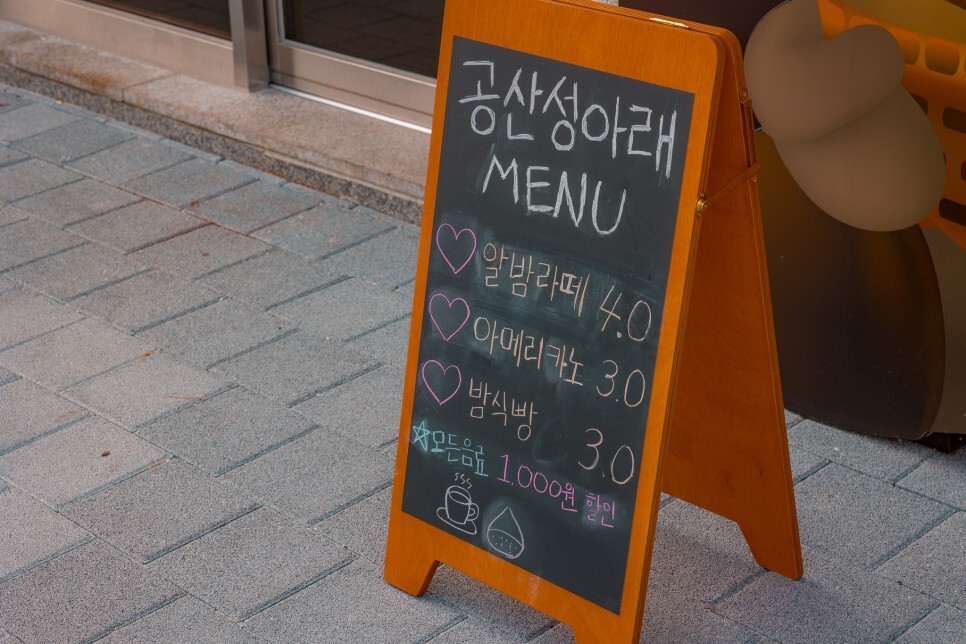 공산성아래
MENU
알밤라떼 4.0
아메리카노 3.0
밤식빵 3.0
모든음료 1.000원 할인